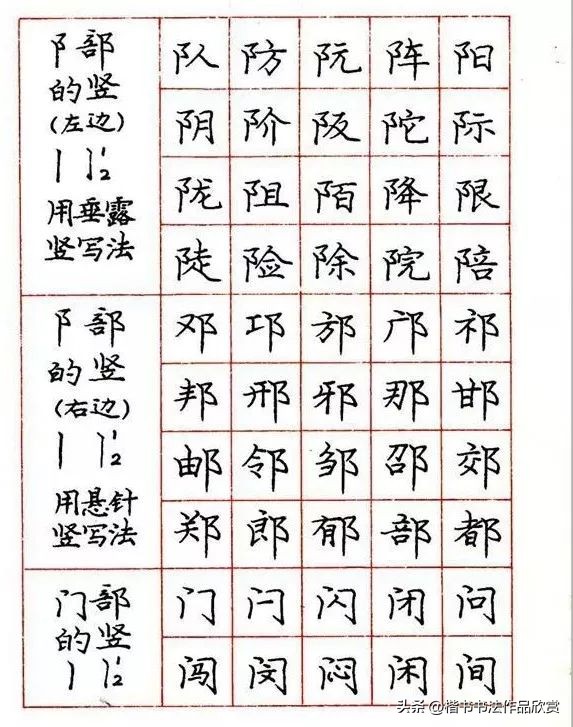 阝部
的竖
(左边)
用垂露
竖写法
队防阮阵阳
阴阶阪陀际
陇阻陌降限
陡险除院陪
阝部
的竖
(右边)
用悬针
竖写法
邓邛邡邝祁
邦邢邪那邯
邮邻邹邵郊
郑郎郁部都
门部
的竖
门闩闪闭问
闯闵闷闲间
头条 @楷书书法作品欣赏